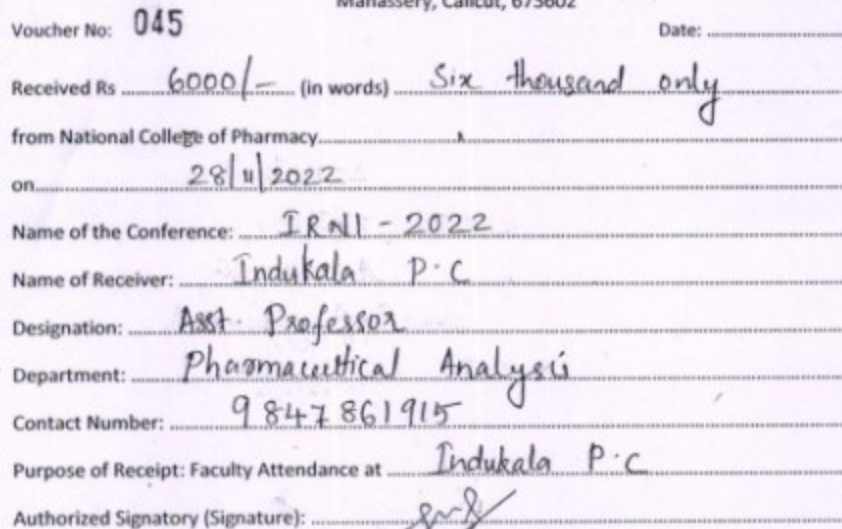 Manassery, Calicut, 673602
Voucher No: 045 Date:
Received Rs 6000/- (in words) Six thousand only
from National College of Pharmacy
on 28/11/2022
Name of the Conference: IRNI - 2022
Name of Receiver: Indukala P.C
Designation: Asst. Professor
Department: Pharmaceutical Analysis
Contact Number: 9847861915
Purpose of Receipt: Faculty Attendance at Indukala P.C
Authorized Signatory (Signature):